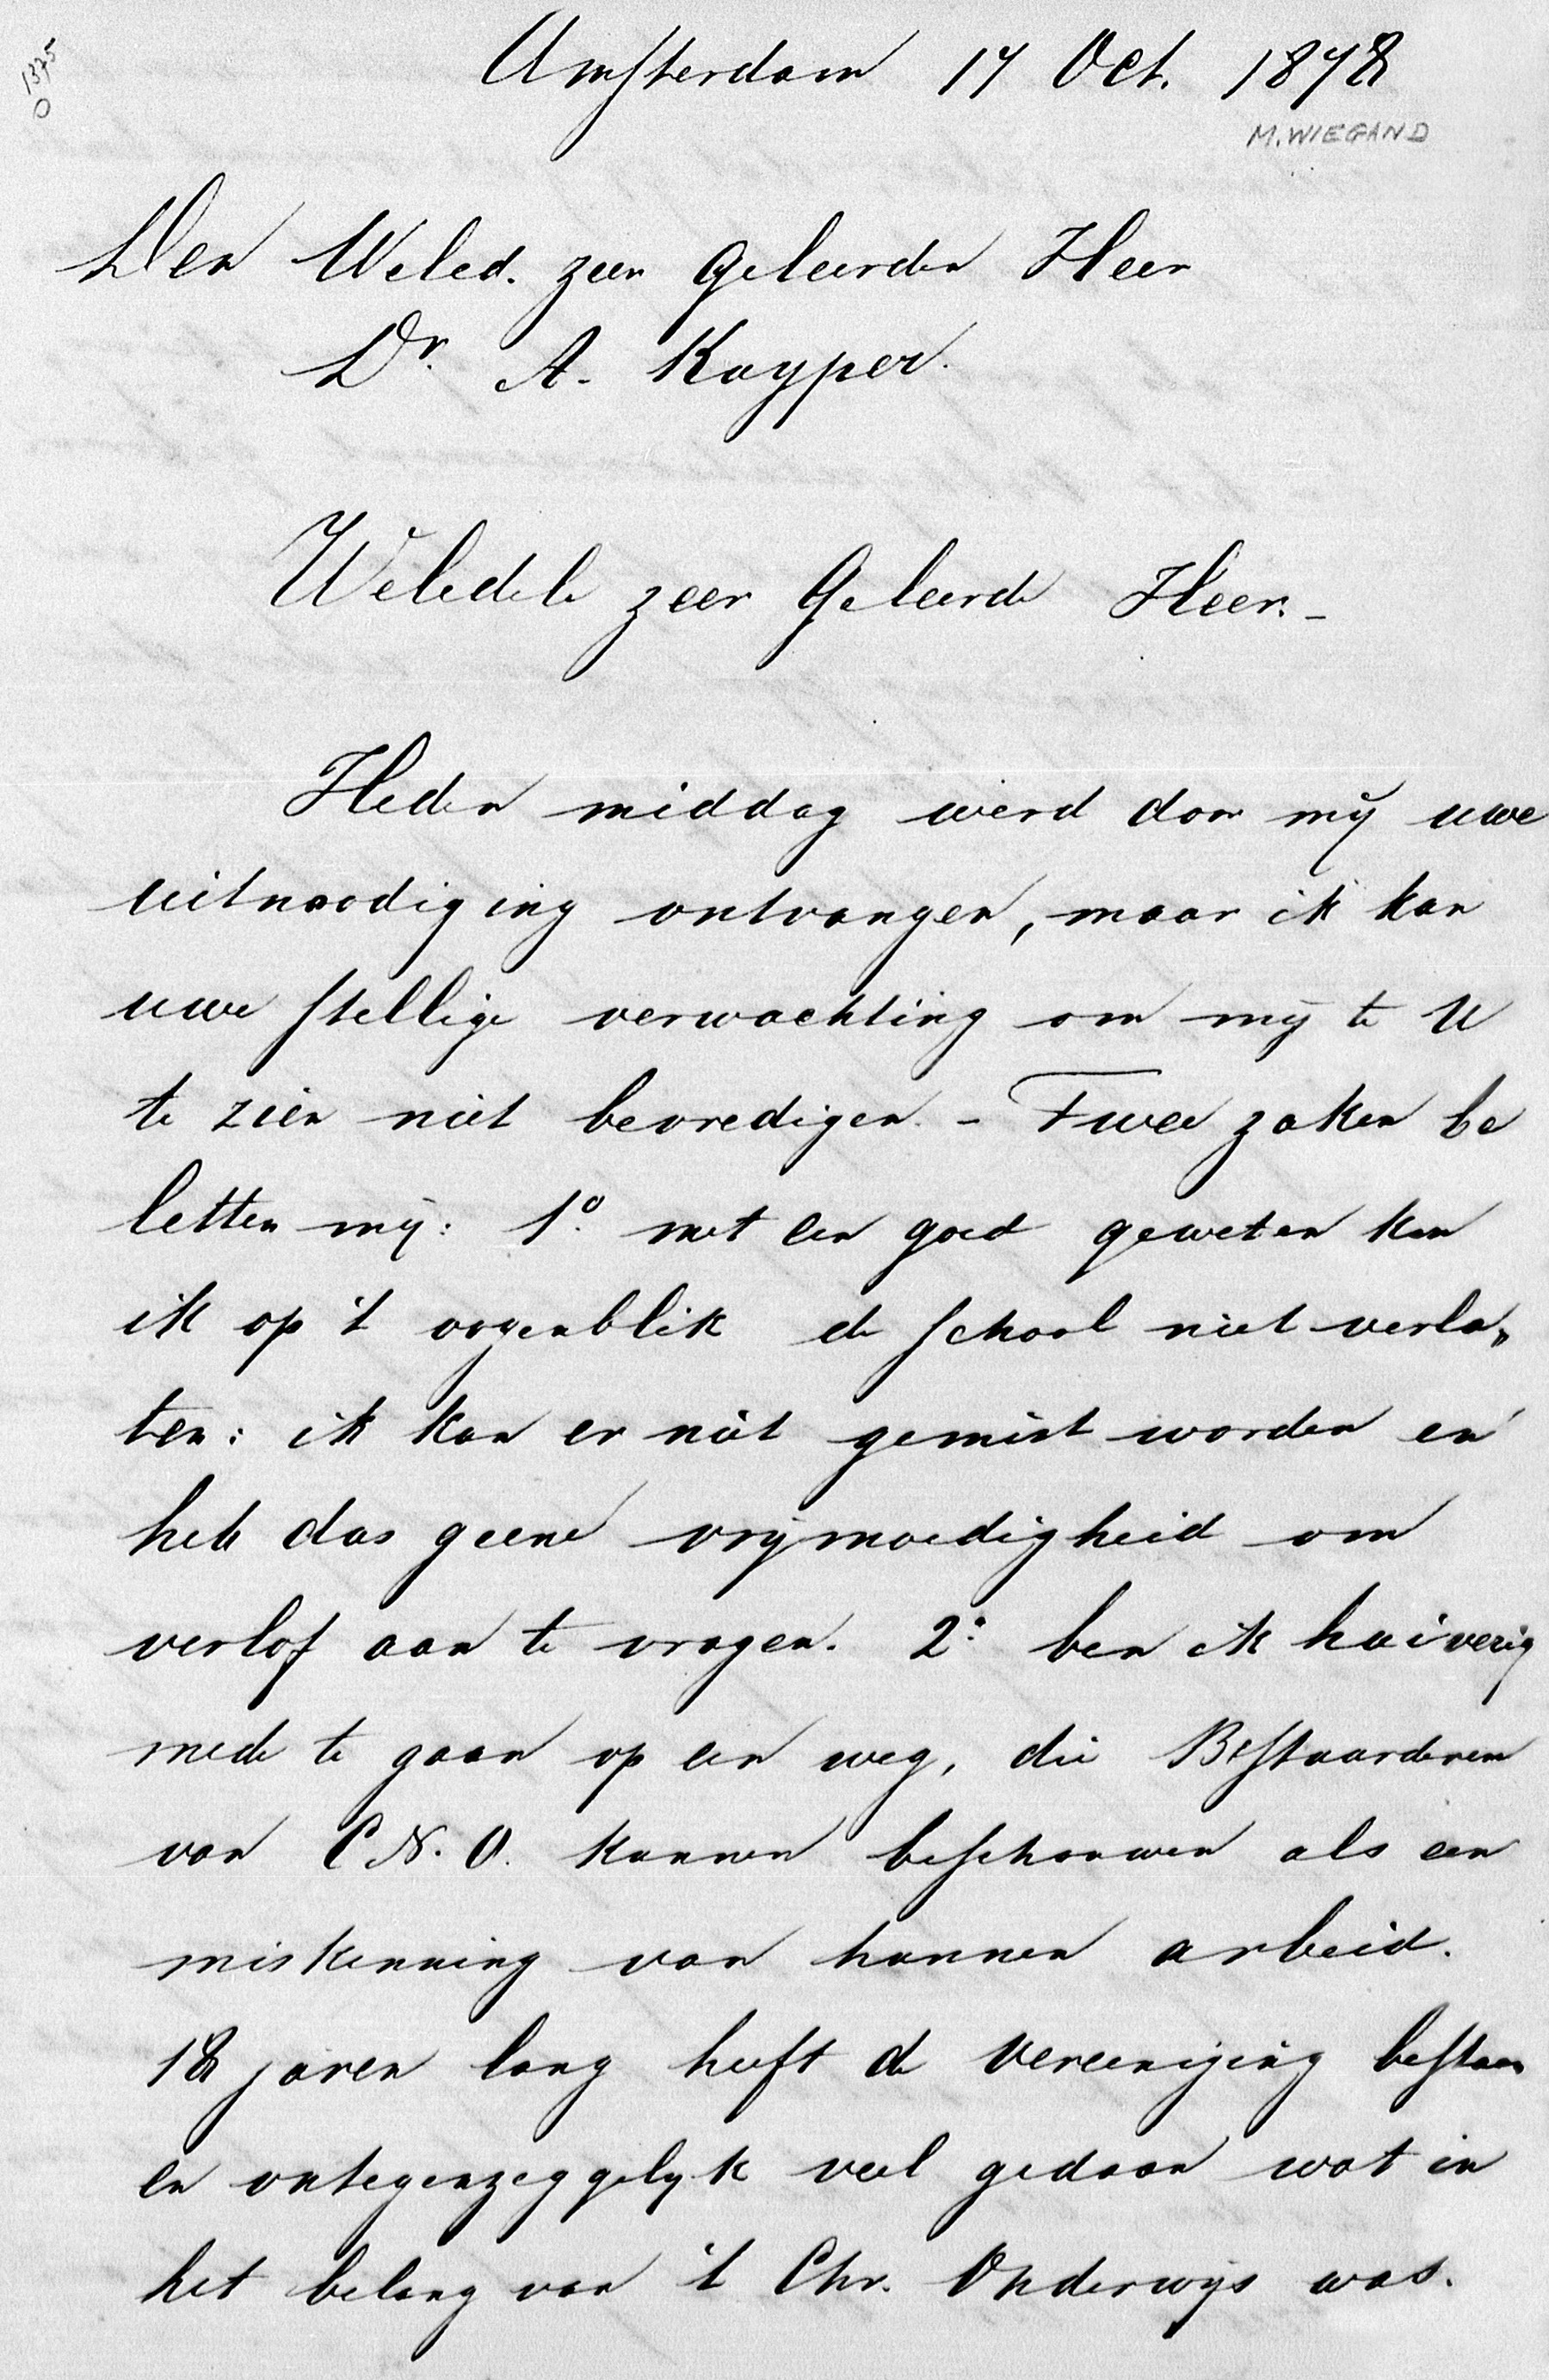 1375
0
Amsterdam 17 Oct. 1878
M. WIEGAND
Den Weled. zeer Geleerden Heer
Dr. A. Kuyper.
Weledele zeer Geleerde Heer. -
Heden middag werd door mij uwe
uitnoodiging ontvangen, maar ik kan
uwe stellige verwachting om mij te U
te zien niet bevredigen. - Twee zaken be
letten mij: 1o. met een goed geweten kan
ik op 't oogenblik de school niet verla„
ten: ik kan er niet gemist worden en
heb dus geene vrijmoedigheid om
verlof aan te vragen. 2o ben ik huiverig
mede te gaan op een weg, die Bestuurderen
van C.N.O. kunnen beschouwen als een
miskenning van hunnen arbeid.
18 jaren lang heeft de Vereeniging bestaan
en ontegenzeggelijk veel gedaan wat in
het belang van 't Chr. Onderwijs was.